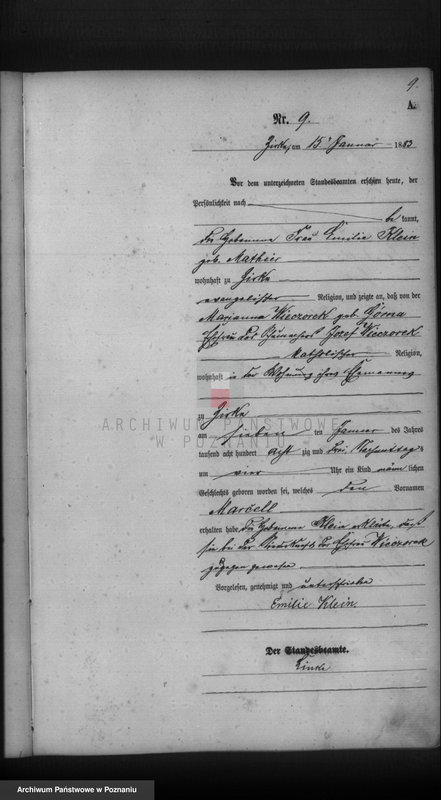 9.
A.
Nr. 9.
Zirke, am 15ten Januar 1883
Vor dem unterzeichneten Standesbeamten erschien heute, der
Persönlichkeit nach
bekannt,
die Hebamme Frau Emilie Klein
geb. Matheis
wohnhaft zu Zirke
evangelischer Religion, und zeigte an, daß von der
Marianna Wieczorek geb. Górna
Ehefrau des Schumachers Jozef Wieczorek
katholischer Religion,
wohnhaft in der Wohnung ihres Ehemannes
zu Zirke
ARCHIWUM PAŃSTWOWE
W POZNANIU
am sieben ten Januar des Jahres
tausend acht hundert achtzig und drei Nachmittags
um vier Uhr ein Kind männlichen
Geschlechts geboren worden sei, welches den Vornamen
Marcell
erhalten habe. Die Hebamme Klein erklärte, daß
sie bei der Niederkunft der Ehefrau Wieczorek
zugegen gewesen.
Vorgelesen, genehmigt und unterschrieben
Emilie Klein.
Der Standesbeamte.
Archiwum Państwowe w Poznaniu